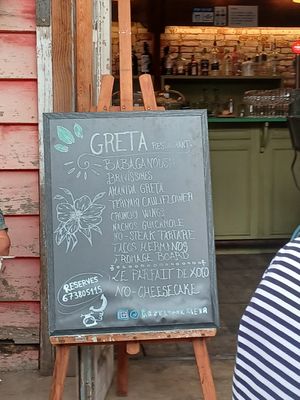 GRETA
GRETA RESTAURANT
BABAGANOUSH
AMANIDA GRETA
TERIYAKI CAULIFLOWER
CRUNCHY WINGS
NACHOS GUACAMOLE
NO-STEAK TARTARE
TACOS HERMANOS
FROMAGE BOARD
LE PARFAIT DE XOCO
NO-CHEESECAKE
RESERVES
673805115